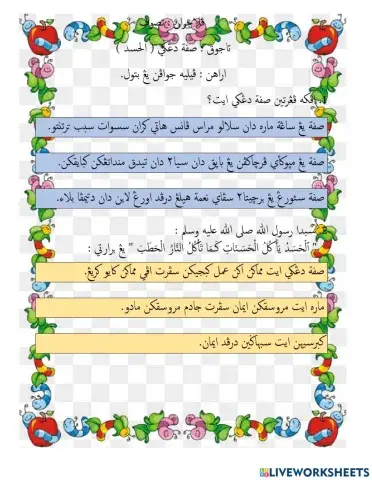 ڤلاجرن : تصوف
تاجوق : صفة دڠکي ( الحسد )
اراهن : ڤيليه جواڤن يڠ بتول.
1. اڤکه ڤڠرتين صفة دڠکي ايت؟
صفة يڠ ساڠة ماره دان سلالو مراس ڤانس هاتي کران سسوات سبب ترتنتو.
صفة يڠ مموکاٴي ڤرچاکڤن يڠ بايق دان سيا٢ دان تيدق مندا تڠکن کبايقکن.
صفة سئورڠ يڠ برچيتا٢ سڤاي نعمة هيلڠ درڤد اورڠ لاين دان دتيمڤا بلاء.
2. سبدا رسول الله صلى الله عليه وسلم :
" اَلْحَسَدُ يَأْكُلُ الْحَسَنَاتِ كَمَا تَأْكُلُ النَّارُ الْحَطَبَ " يڠ برارتي :
صفة دڠکي ايت مماکن اکن عمل کبجيکن سڤرت اڤي مماکن کايو کريڠ.
ماره ايت مروسقکن ايمان سڤرت جادم مروسقکن مادو.
کبرسيهن ايت سبهاڬين درڤد ايمان.
LIVEWORKSHEETS